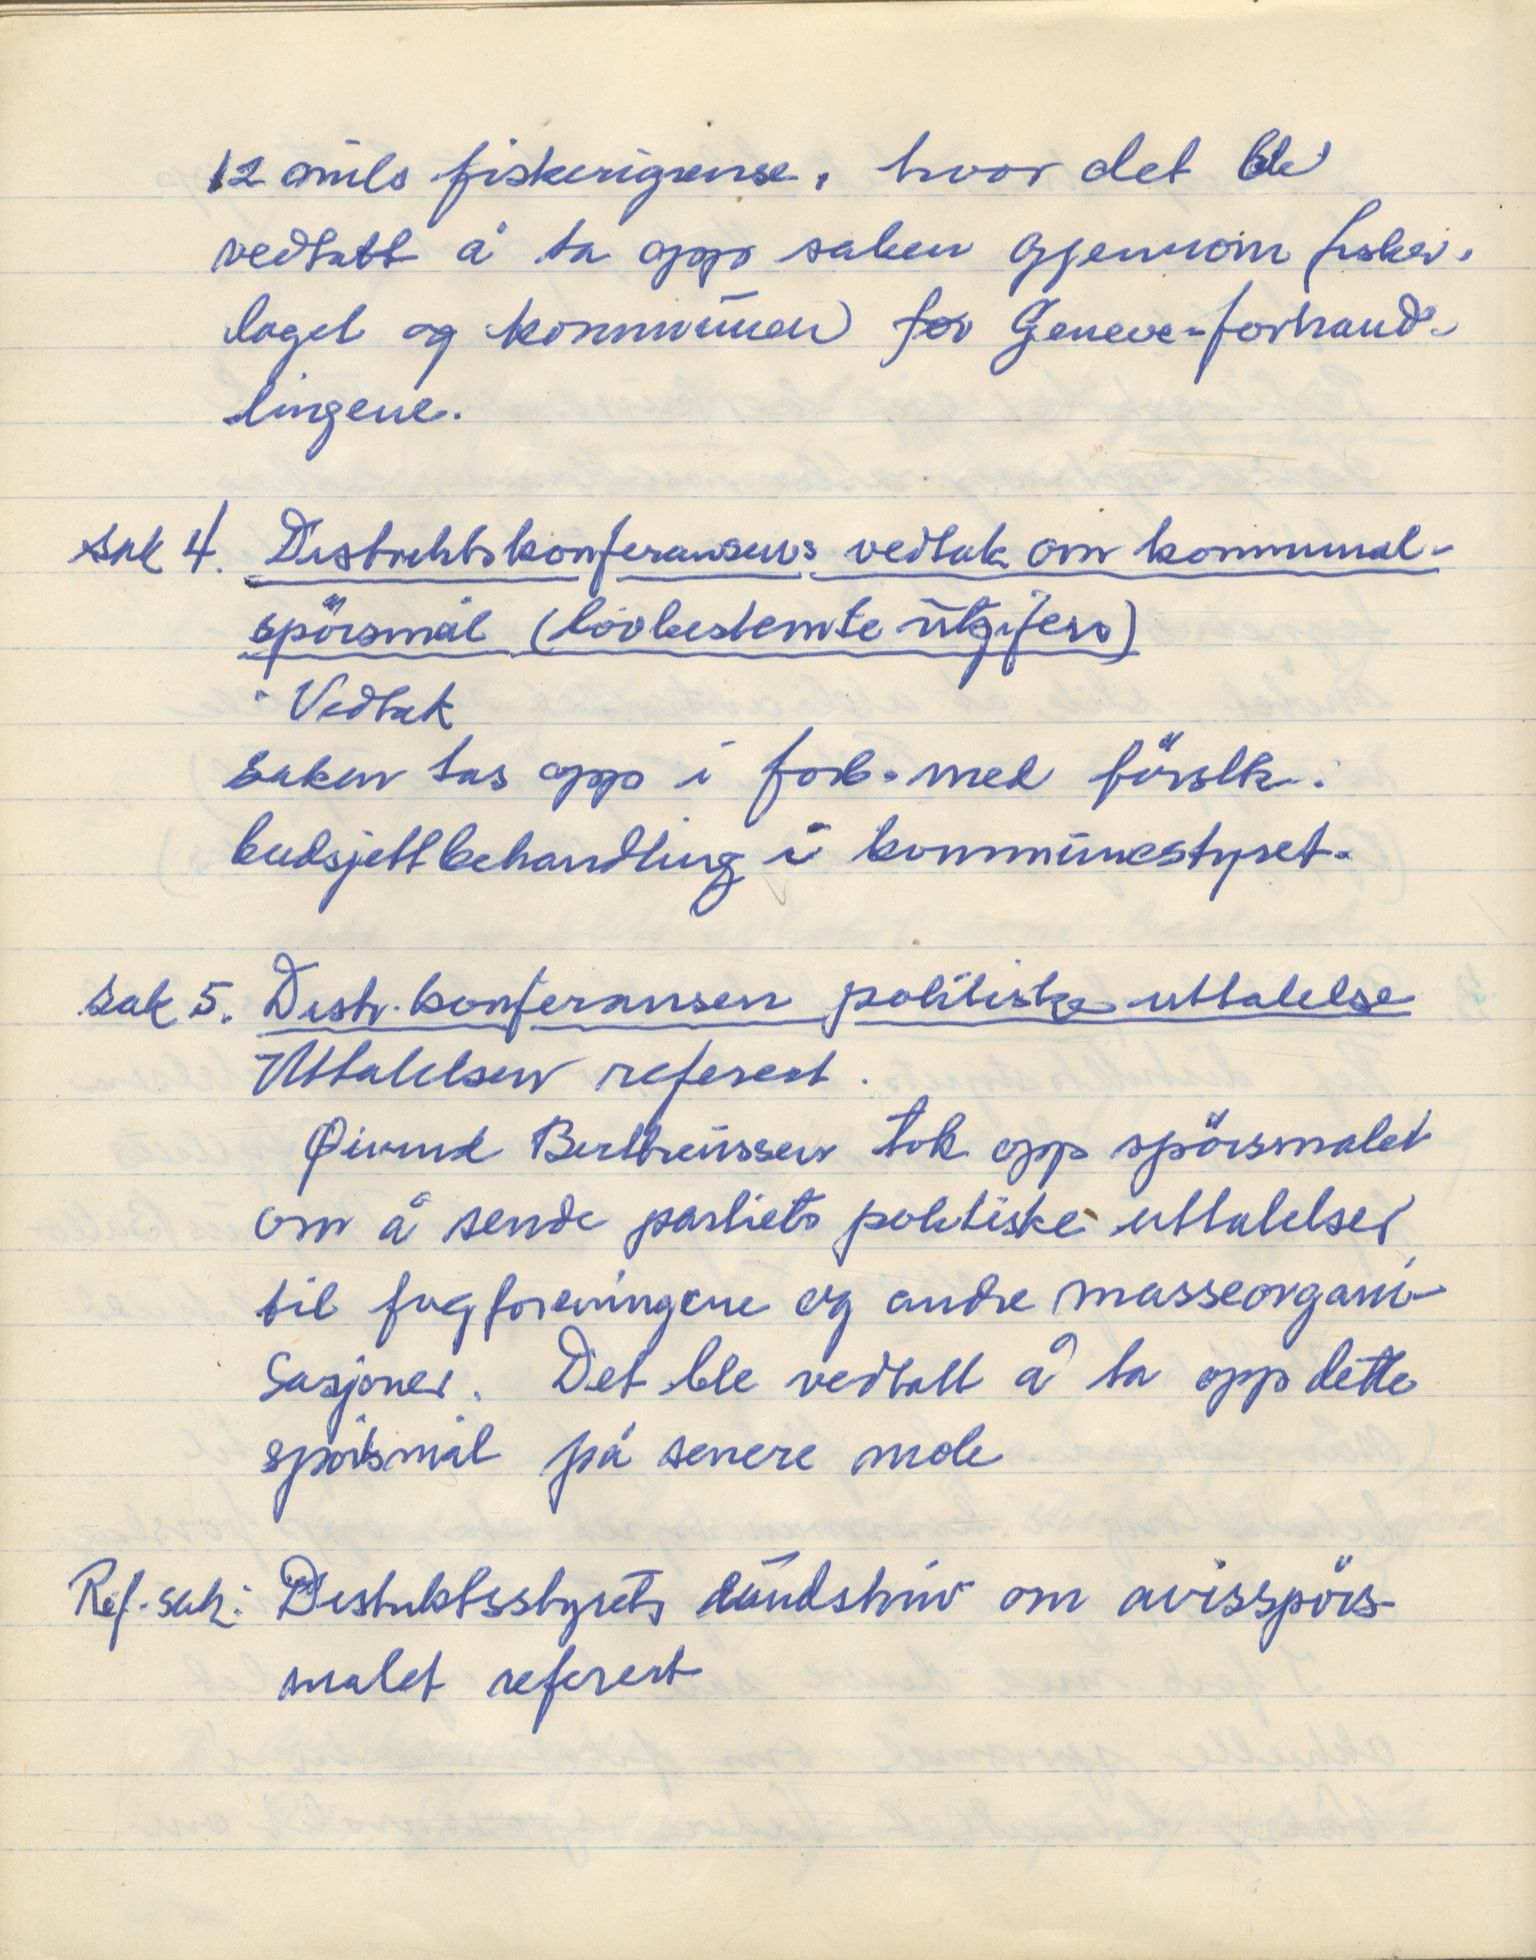 12 mils fiskerigrense, hvor det ble
vedtatt å ta opp saken gjennom fisker-
laget og kommunen før Geneve-forhand-
lingene.
Sak 4. Distriktskonferansens vedtak om kommunal-
spörsmål (lovbestemte utgifter)
Vedtak
Saken tas opp i forb. med förstk.
budsjettbehandling i kommunestyret.
Sak 5. Distr. konferansen politiske uttalelse
Uttalelsen referert.
Øivind Bertheussen tok opp spörsmålet
om å sende partiets politiske uttalelser
til fagforeningene og andre masseorgani-
sasjoner. Det ble vedtatt å ta opp dette
spörsmål på senere möte
Ref. sak: Distriktsstyrets rundskriv om avisspörs-
målet referert